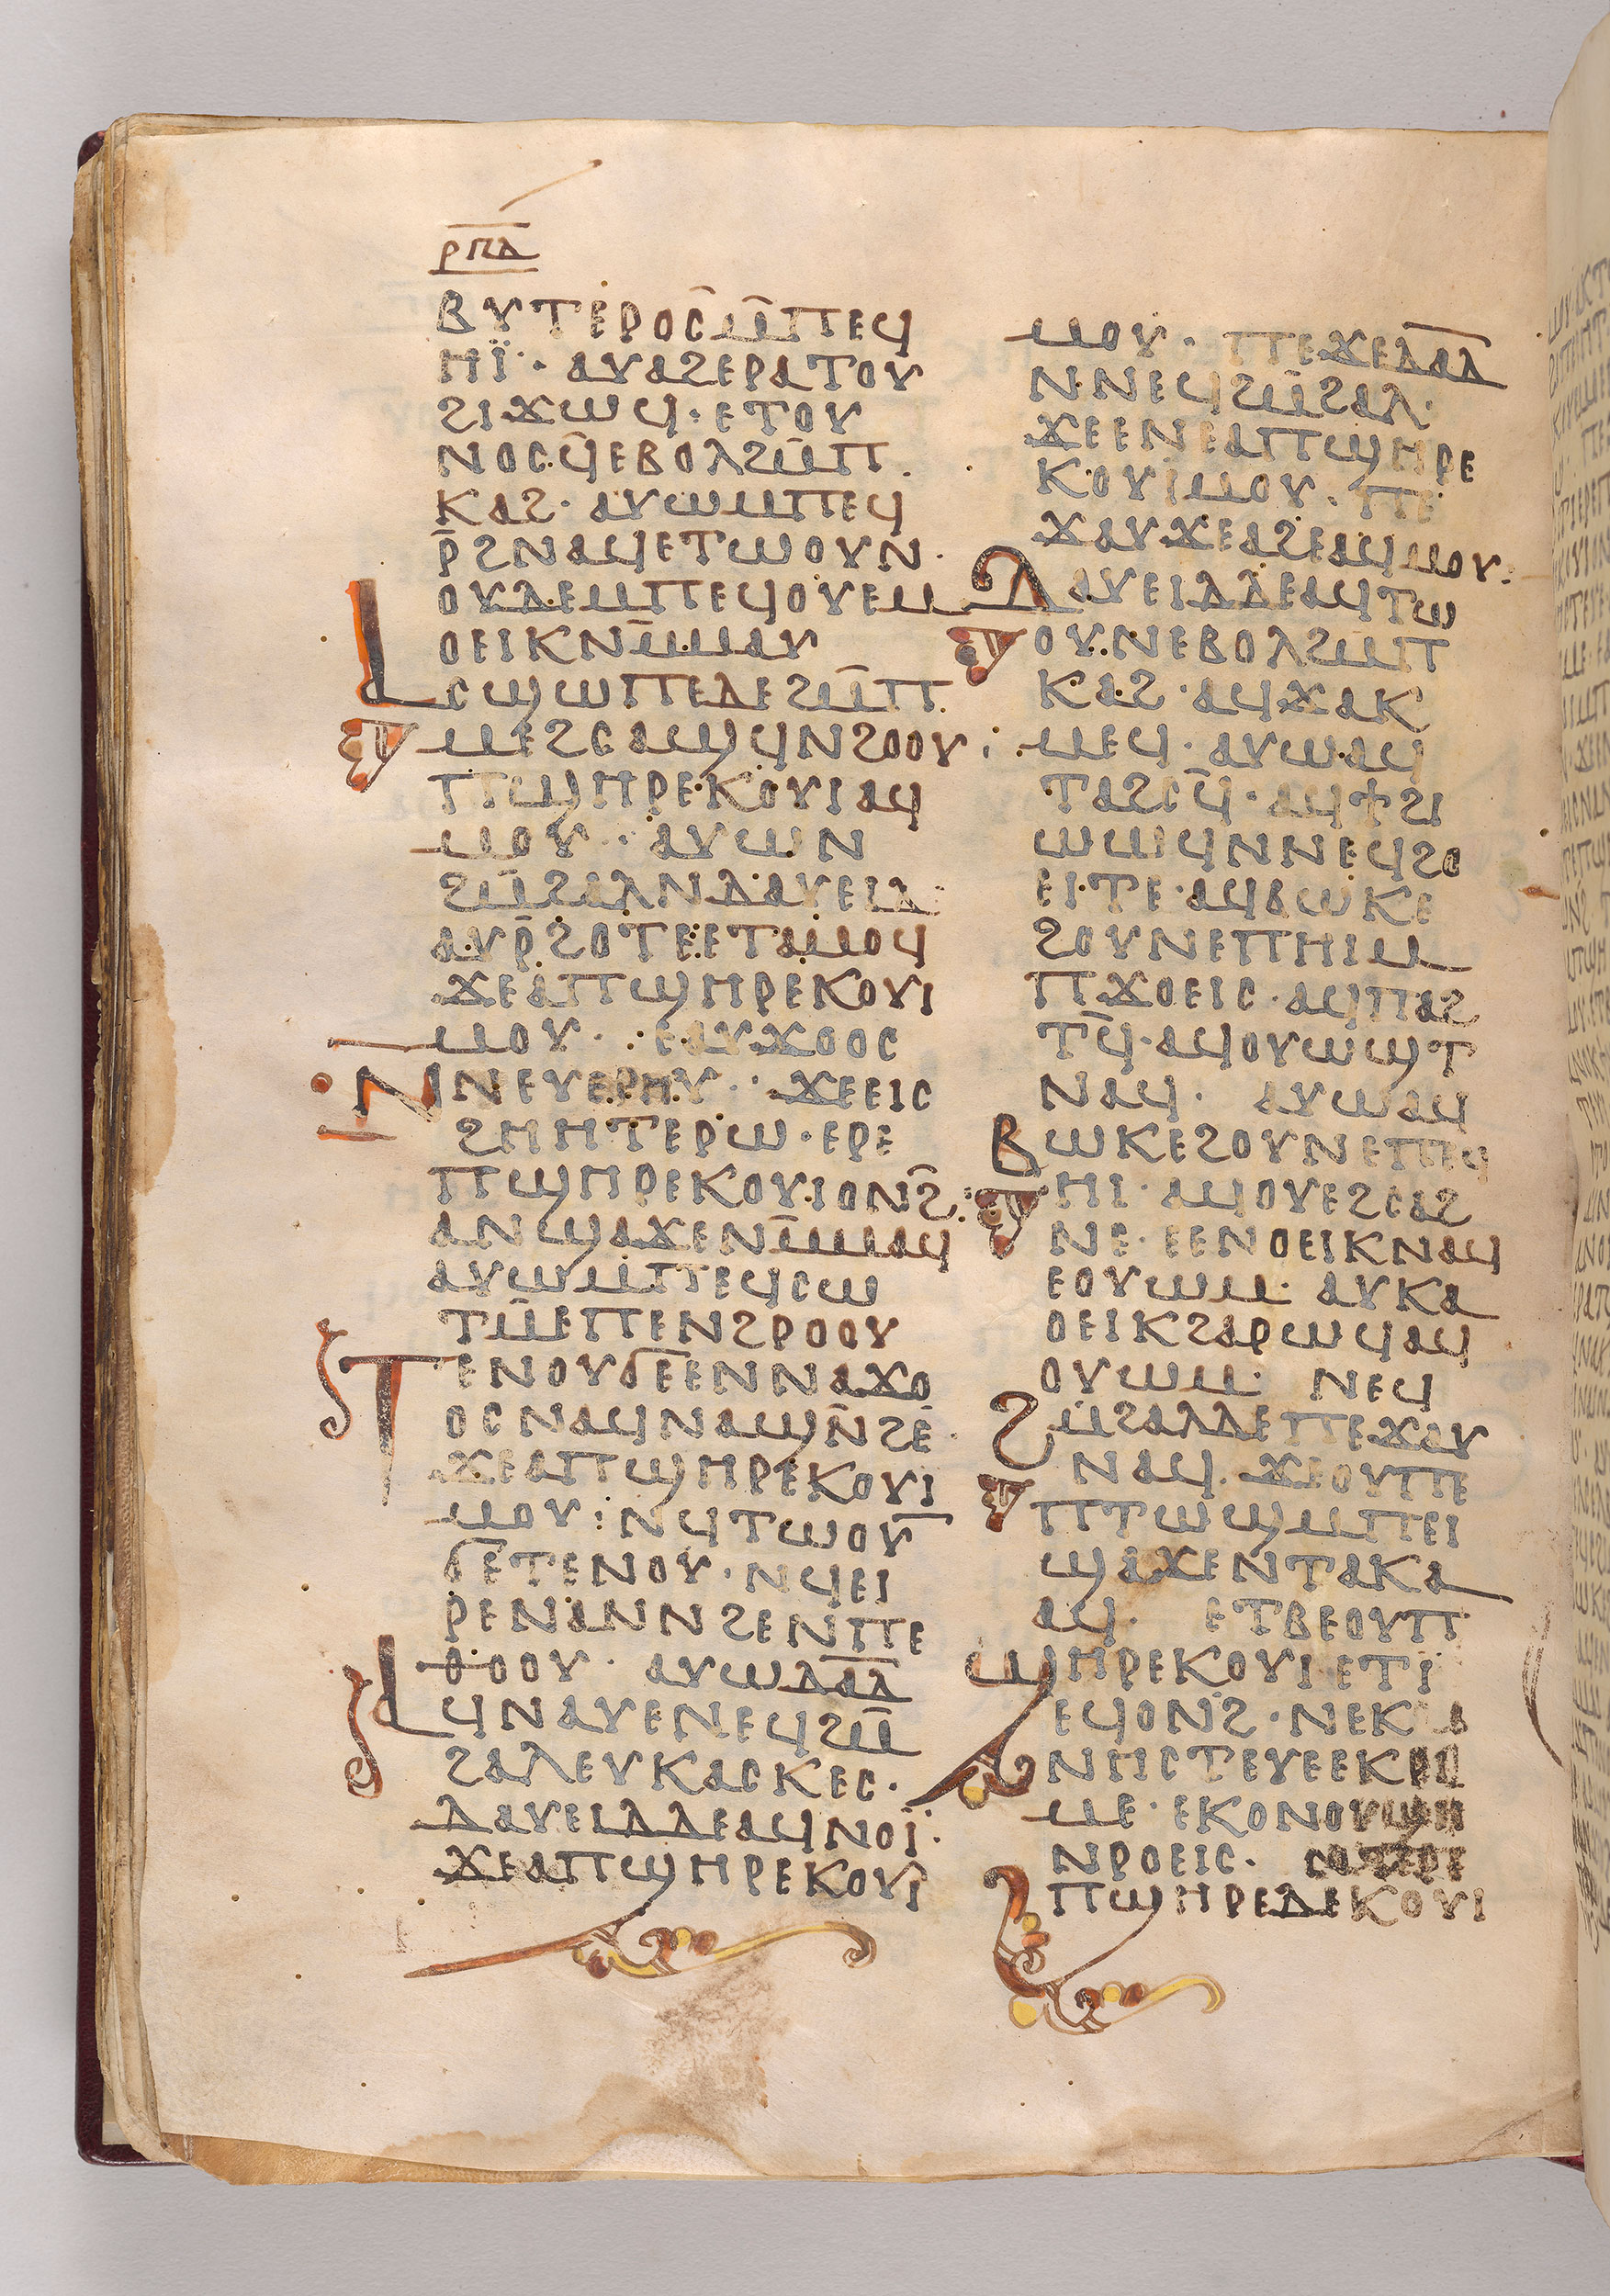 ⲣⲡⲇ
ⲃⲩⲧⲉⲣⲟⲥⲙ̄ⲡⲉϥ
ⲏⲓ̈· ⲁⲩⲁϩⲉⲣⲁⲧⲟⲩ
ϩⲓϫⲱϥ· ⲉⲧⲟⲩ
ⲛⲟⲥϥ̄ⲉⲃⲟⲗϩⲙ̄ⲡ
ⲕⲁϩ· ⲁⲩⲱⲙⲡⲉϥ
ⲣ̄ϩⲛⲁϥⲉⲧⲱⲟⲩⲛ·
ⲟⲩⲇⲉⲙⲡⲉϥⲟⲩⲉⲙ
ⲟⲉⲓⲕⲛⲙ̄ⲙⲁⲩ
ⲁⲥϣⲱⲡⲉⲇⲉϩⲙ̄ⲡ
ⲙⲉϩⲥⲁϣϥⲛϩⲟⲟⲩ·
ⲡϣⲏⲣⲉⲕⲟⲩⲓⲁϥ
ⲙⲟⲩ· ⲁⲩⲱⲛ
ϩⲙ̄ϩⲁⲗⲛⲇⲁⲩⲉⲓⲇ·
ⲁⲩⲣ̄ϩⲟⲧⲉⲉⲧⲁⲙⲟϥ
ϫⲉⲁⲡϣⲏⲣⲉⲕⲟⲩⲓ
ⲙⲟⲩ· ⲉⲁⲩϫⲟⲟⲥ
ⲛⲛⲉⲩⲉⲣⲏⲩ· ϫⲉⲉⲓⲥ
ϩⲏⲏⲧⲉⲣⲱ· ⲉⲣⲉ
ⲡϣⲏⲣⲉⲕⲟⲩⲓⲟⲛϩ̄·
ⲁⲛϣⲁϫⲉⲛⲙ̄ⲙⲁϥ
ⲁⲩⲱⲙⲡⲉϥⲥⲱ
ⲧⲙ̄ⲉⲡⲉⲛϩⲣⲟⲟⲩ
ⲧⲉⲛⲟⲩϭⲉⲉⲛⲛⲁϫⲟ
ⲟⲥⲛⲁϥⲛⲁϣⲛ̄ϩⲉ·
ϫⲉⲁⲡϣⲏⲣⲉⲕⲟⲩⲓ
ⲙⲟⲩ: ⲛϥⲧⲱⲟⲩ
ϭⲉⲧⲉⲛⲟⲩ· ⲛϥⲉⲓ
ⲣⲉⲛⲁⲛⲛϩⲉⲛⲡⲉ
ⲑⲟⲟⲩ· ⲁⲩⲱⲇⲁ̄ⲇ
ⲁϥⲛⲁⲩⲉⲛⲉϥϩⲙ̄
ϩⲁⲗⲉⲩⲕⲁⲥⲕⲉⲥ·
ⲇⲁⲩⲉⲓⲇⲇⲉⲁϥⲛⲟⲓ̈·
ϫⲉⲁⲡϣⲏⲣⲉⲕⲟⲩⲓ
ⲙⲟⲩ· ⲡⲉϫⲉⲇⲁ̄ⲇ
ⲛⲛⲉϥϩⲙ̄ϩⲁⲗ·
ϫⲉⲉⲛⲉⲁⲡϣⲏⲣⲉ
ⲕⲟⲩⲓⲙⲟⲩ· ⲡⲉ
ϫⲁⲩϫⲉⲁϩⲉⲁϥⲙⲟⲩ:
ⲇⲁⲩⲉⲓⲇⲇⲉⲁϥⲧⲱ
ⲟⲩⲛⲉⲃⲟⲗϩⲙ̄ⲡ
ⲕⲁϩ· ⲁϥϫⲁⲕ
ⲙⲉϥ· ⲁⲩⲱⲁϥ
ⲧⲁϩⲥϥ̄· ⲁϥϯϩⲓ
ⲱⲱϥⲛⲛⲉϥϩⲟ
ⲉⲓⲧⲉ· ⲁϥⲃⲱⲕⲉ
ϩⲟⲩⲛⲉⲡⲏⲓⲙ
ⲡϫⲟⲉⲓⲥ· ⲁϥⲡⲁϩ
ⲧϥ̄· ⲁϥⲟⲩⲱϣⲧ
ⲛⲁϥ· ⲁⲩⲱⲁϥ
ⲃⲱⲕⲉϩⲟⲩⲛⲉⲡⲉϥ
ⲏⲓ· ⲁϥⲟⲩⲉϩⲥⲁϩ
ⲛⲉ· ⲉⲉⲛⲟⲉⲓⲕⲛⲁϥ
ⲉⲟⲩⲱⲙ· ⲁⲩⲕⲁ
ⲟⲉⲓⲕϩⲁⲣⲱϥⲁϥ
ⲟⲩⲱⲙ· ⲛⲉϥ
ϩⲙ̄ϩⲁⲗⲇⲉⲡⲉϫⲁⲩ
ⲛⲁϥ· ϫⲉⲟⲩⲡⲉ
ⲡⲧⲱϣⲙⲡⲉⲓ
ϣⲁϫⲉⲛⲧⲁⲕⲁ
ⲁϥ· ⲉⲧⲃⲉⲟⲩⲡ
ϣⲏⲣⲉⲕⲟⲩⲓⲉⲧⲓ
ⲉϥⲟⲛϩ· ⲛⲉⲕ
ⲛⲏⲥⲧⲉⲩⲉⲉⲕⲣⲓ
ⲙⲉ· ⲉⲕⲟⲛⲟⲩϣⲏ
ⲛⲣⲟⲉⲓⲥ·
ⲡϣⲏⲣⲉⲇⲉⲕⲟⲩⲓ